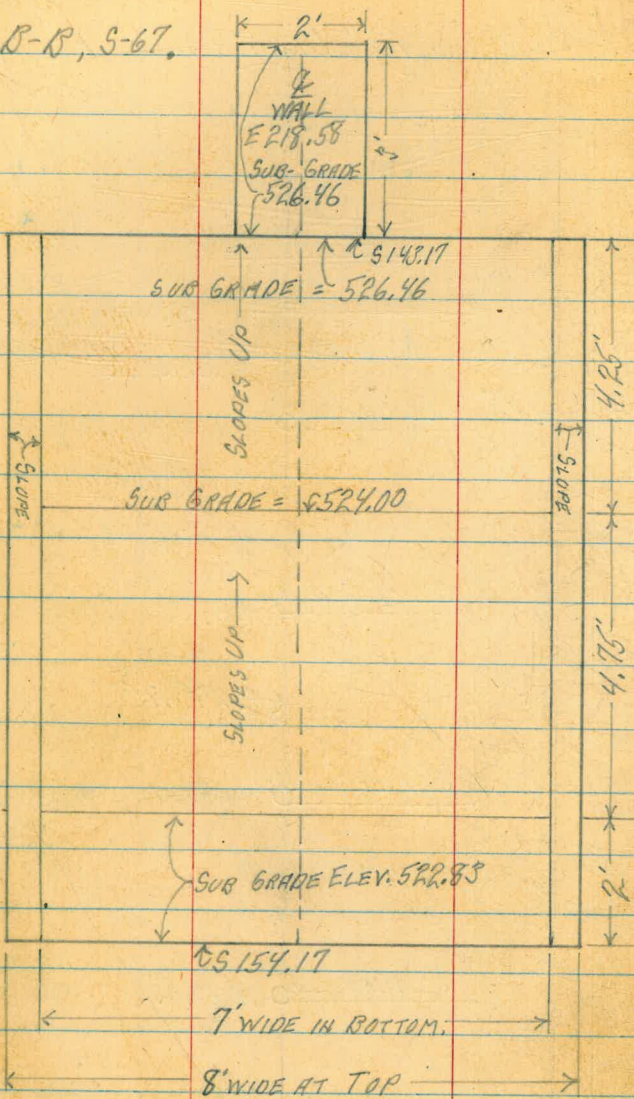 B-B, S-67.
2'
℄
WALL
E 218.58
SUB-GRADE
526.46
3'
S 143.17
SUB GRADE = 526.46
SLOPES UP
4.25'
SLOPE
SLOPE
SUB GRADE = 524.00
SLOPES UP
4.75'
SUB GRADE ELEV. 522.83
2'
S 154.17
7' WIDE IN BOTTOM.
8' WIDE AT TOP